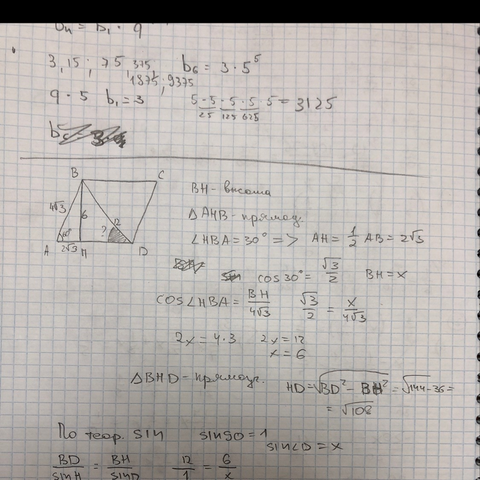 bₙ = b₁ · q
3, 15; 75, 375
1875; 9375
b₆ = 3 · 5⁵
q = 5 b₁ = 3
5 · 5 · 5 · 5 · 5 = 3125
25 125 625
B C
4√3 6 12 ?
A 2√3 H D
BH - высота
△AHB - прямоуг.
∠HBA = 30° => AH = 1/2 AB = 2√3
cos 30° = √3/2 BH = x
cos∠HBA = BH/4√3 √3/2 = x/4√3
2x = 4·3 2x = 12
x = 6
△BHD - прямоуг. HD = √BD² - BH² = √144-36 =
= √108
По теор. sin sin90 = 1
sin∠D = x
BD/sinH = BH/sinD 12/1 = 6/x